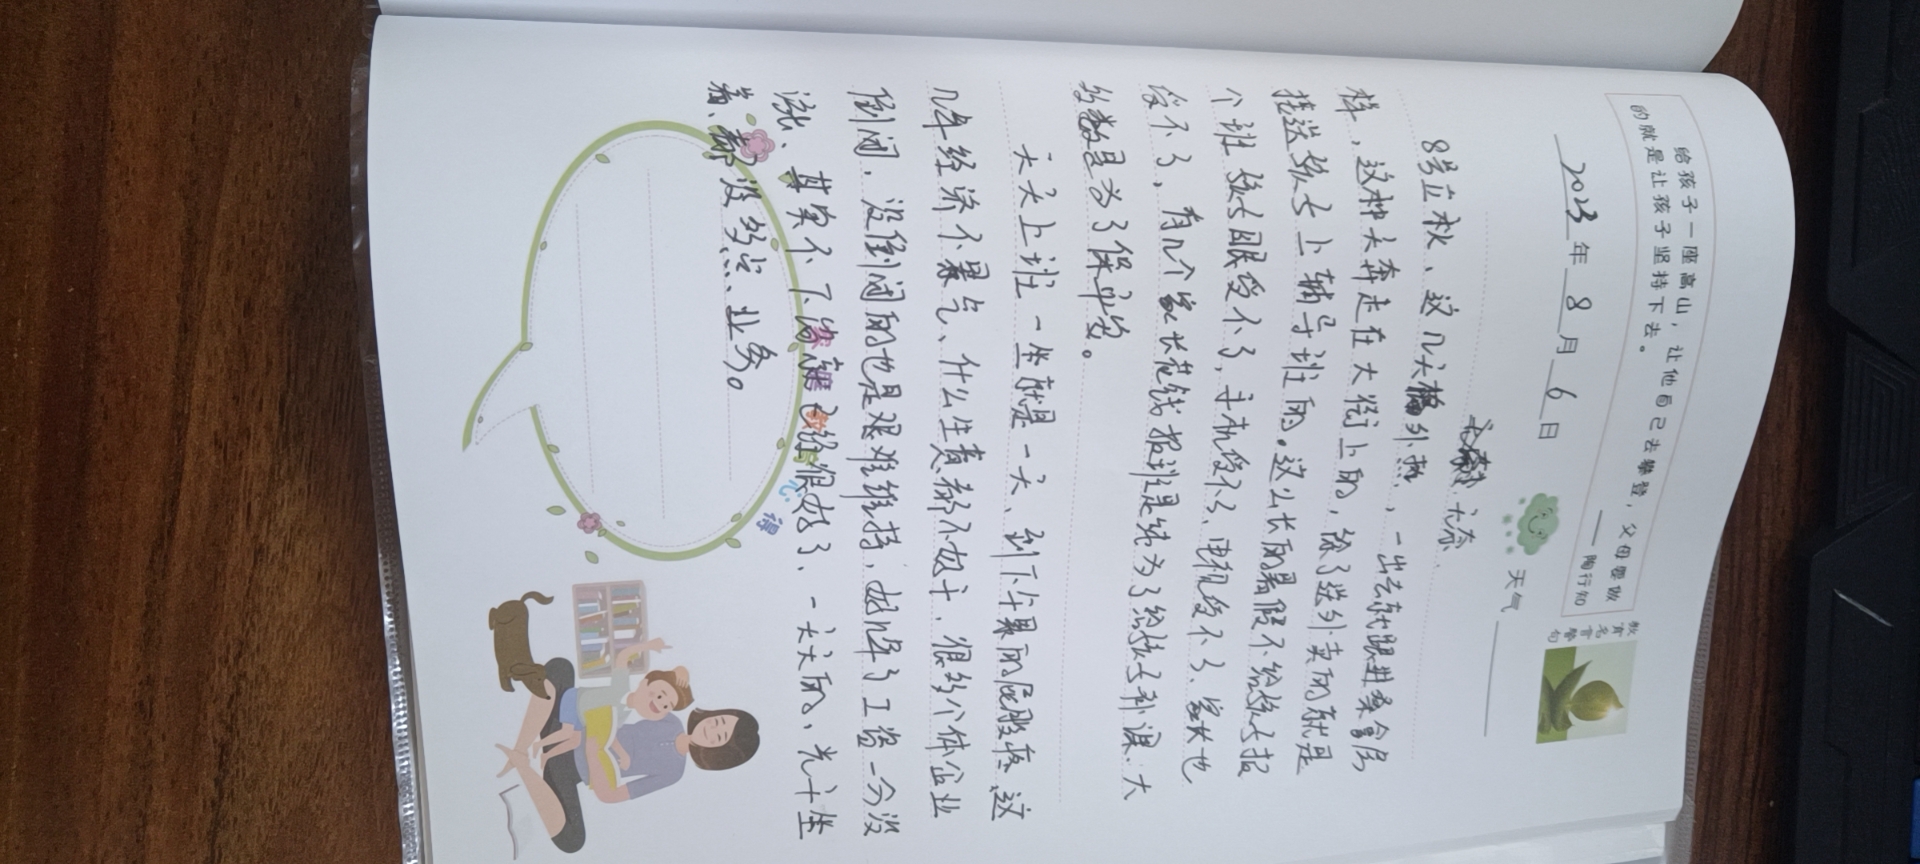 给孩子一座高山，让他自己去攀登，父母要做
的就是让孩子坚持下去。
——陶行知
教育名言警句
2023年8月6日
天气
无奈.
8号立秋、这几天格外热，一出去就跟进桑拿房
样，这种天奔走在大街上的，除了送外卖的就是
接送孩子上辅导班的。这么长的暑假不给孩子报
个班孩子眼受不了，手机受不了、电视受不了、家长也
受不了，有几个家长花钱报班是纯为了给孩子补课、大
多数是为了保平安。
天天上班一坐就是一天、到下午累的屁股疼、这
几年经济不景气、什么生意都不好干，很多个体企业
倒闭，没倒闭的也是艰难维持，好几年了工资一分没
涨、其实不下滑就已经很好了、一天天的、光干坐
着、都没多点业务。
家庭教育心得